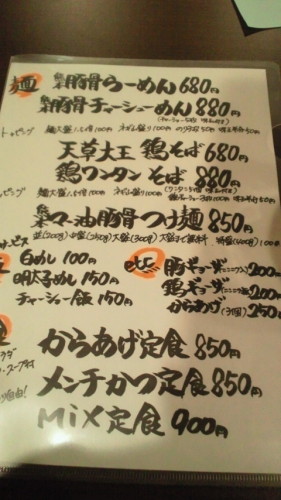 麺
熊本豚骨らーめん 680円
熊本豚骨チャーシューめん 880円
トッピング 麺大盛1.5倍100円 ネギ盛り100円 のり5枚50円 味玉半分50円
天草大王 鶏そば 680円
鶏ワンタン そば 880円
麺大盛1.5倍100円 ネギ盛り100円
熊本マー油豚骨つけ麺 850円
サービス 並(200g) 中盛(250g) 大盛(300g)
白めし 100円
明太子めし 150円
チャーシュー飯 150円
豚ギョーザ 200円
鶏ギョーザ 200円
からあげ(3個) 250円
からあげ定食 850円
メンチかつ定食 850円
Mix定食 900円